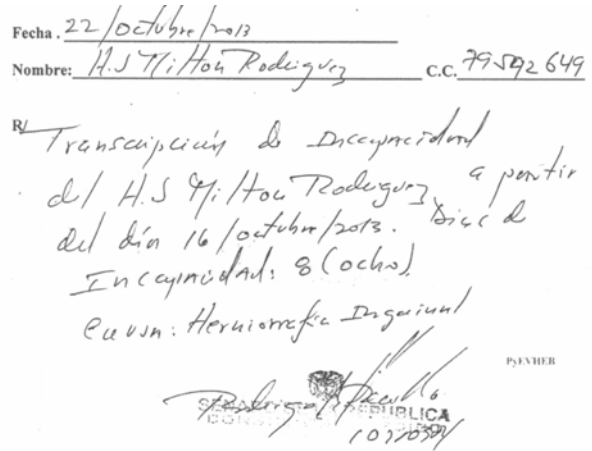 Fecha . 22/octubre/2013
Nombre: H.S Milton Rodriguez C.C. 79592649
R/ Transcripción de Incapacidad
del H.S Milton Rodriguez, a partir
del día 16/octubre/2013. Dias de
Incapacidad: 8 (ocho).
Causa: Herniorrafia Inguinal
PyEVHEB
SENADO REPUBLICA